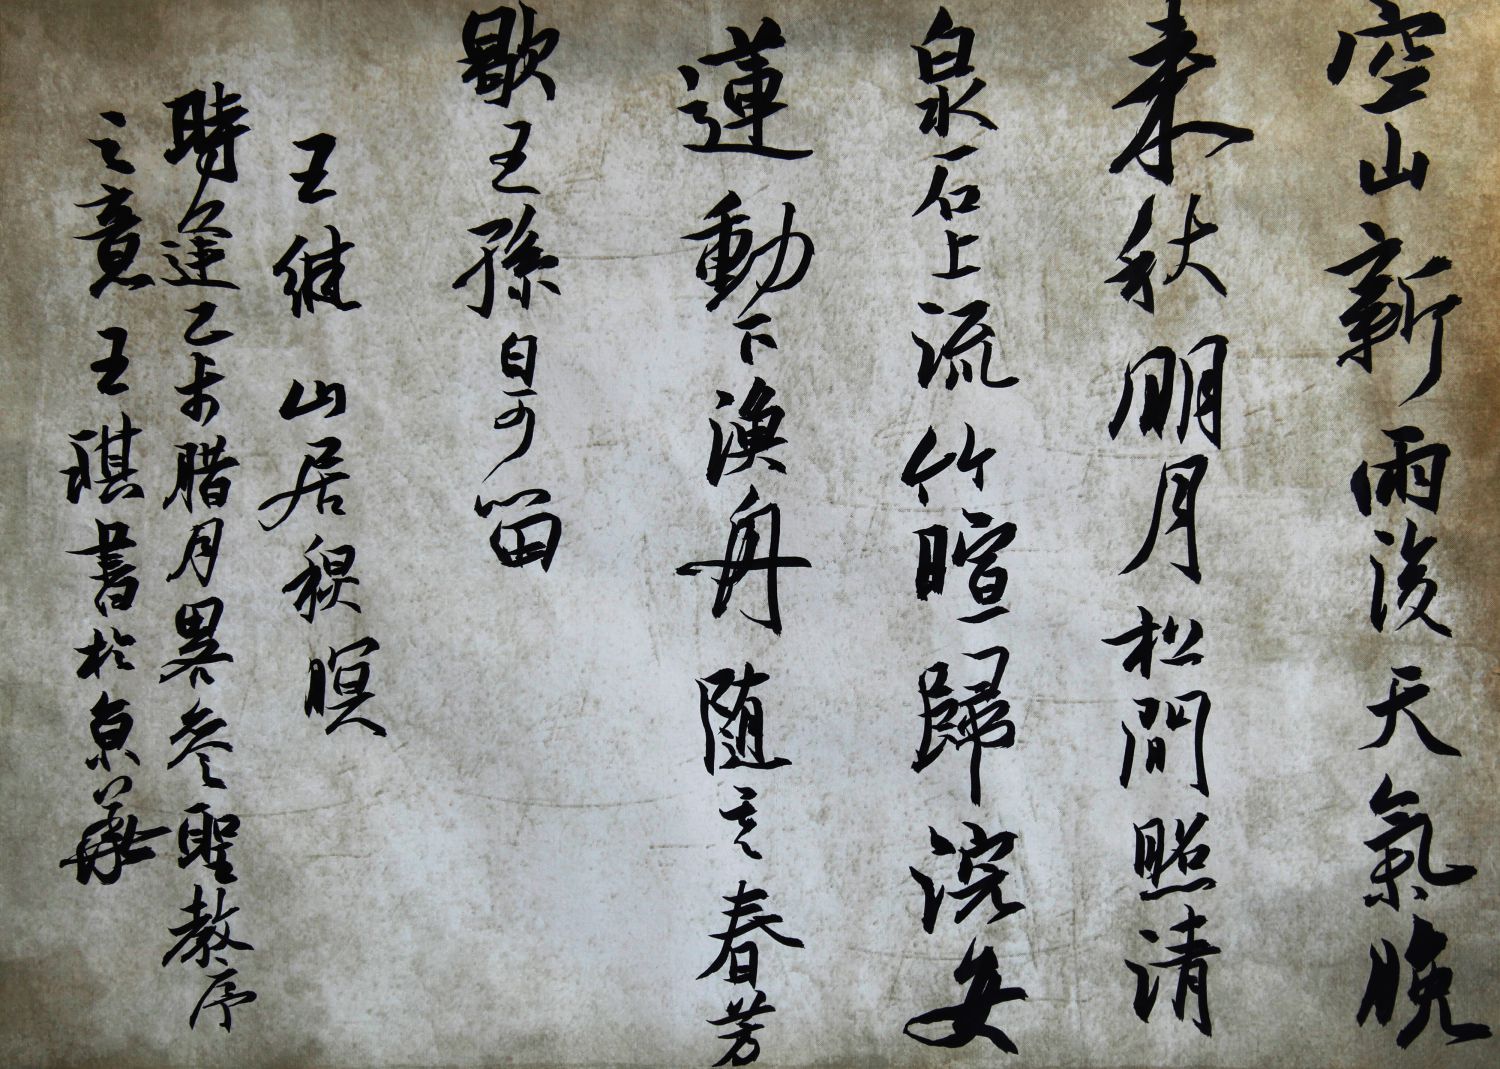 空山新雨後天氣晚
来秋明月松間照清
泉石上流竹暄歸浣女
蓮動下漁舟随意春芳
歇王孫自可留
王維 山居秋暝
時逢乙未腊月畧參聖教序
之意 王琪書於京華